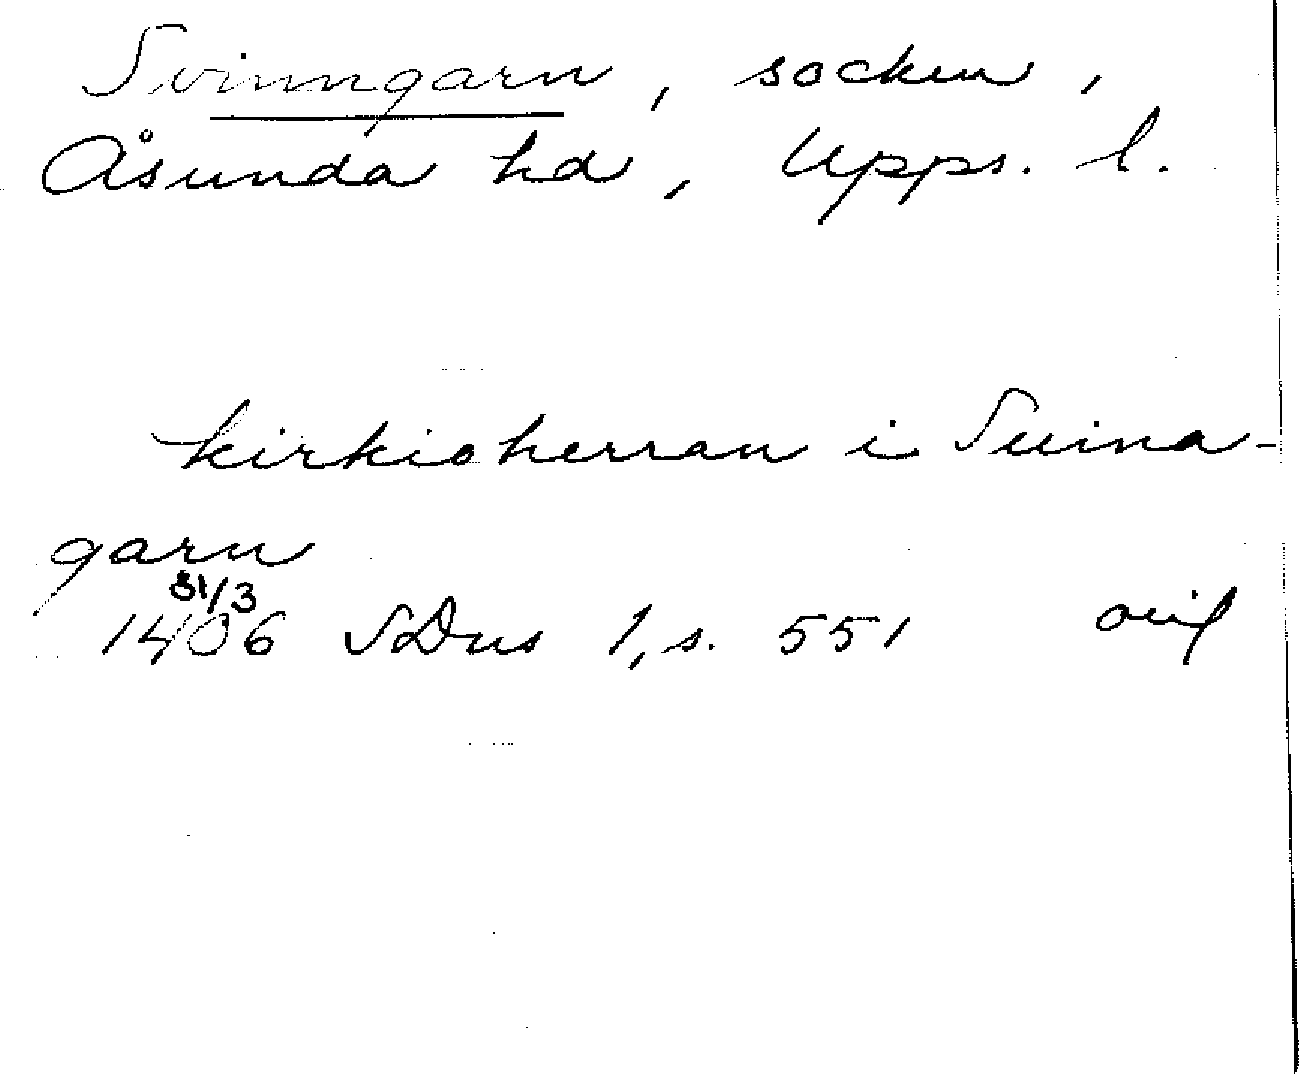 Svinngarn, socken,
Åsunda hd, Upps. l.
kirkioherran i Suina-
garn
31/3
1406 SDns 1, s. 551